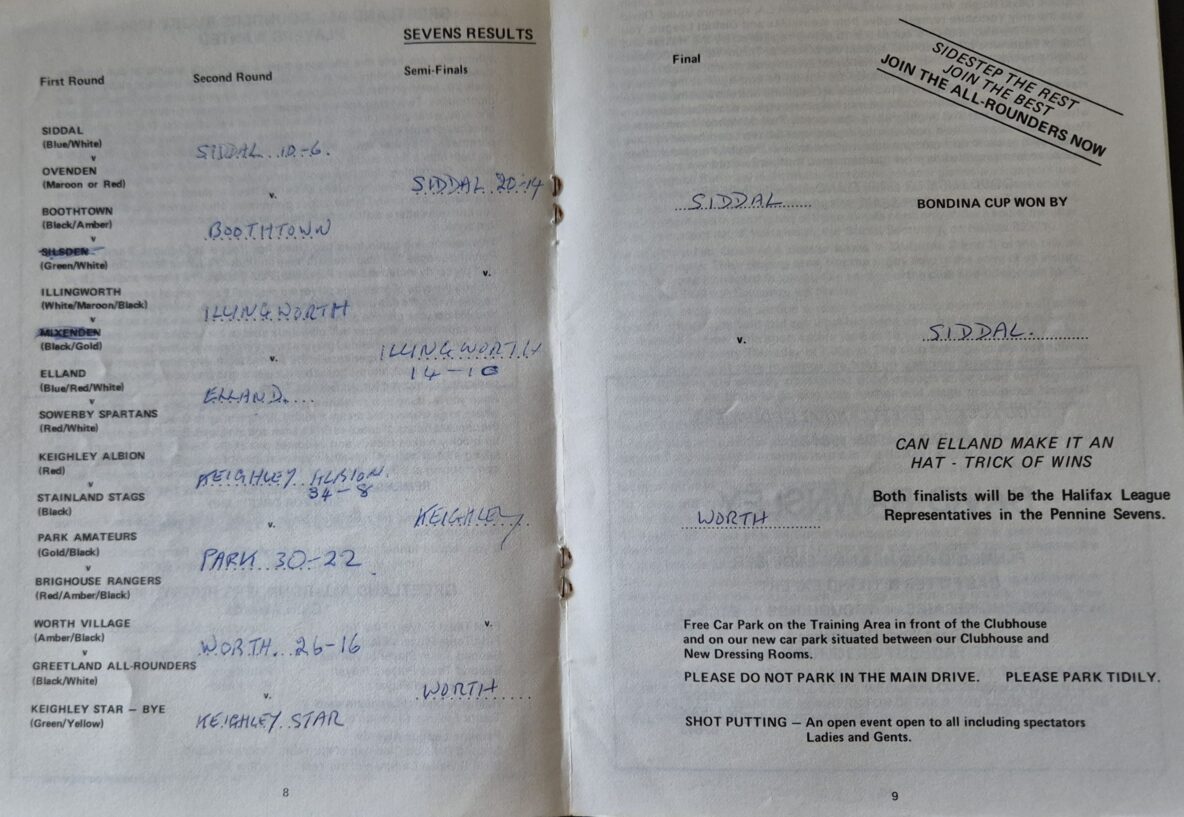 SEVENS RESULTS
First Round
Second Round
Semi-Finals
SIDDAL
(Blue/White)
v
OVENDEN
(Maroon or Red)
BOOTHTOWN
(Black/Amber)
v
SILSDEN
(Green/White)
ILLINGWORTH
(White/Maroon/Black)
v
MIXENDEN
(Black/Gold)
ELLAND
(Blue/Red/White)
v
SOWERBY SPARTANS
(Red/White)
KEIGHLEY ALBION
(Red)
v
STAINLAND STAGS
(Black)
PARK AMATEURS
(Gold/Black)
v
BRIGHOUSE RANGERS
(Red/Amber/Black)
WORTH VILLAGE
(Amber/Black)
v
GREETLAND ALL-ROUNDERS
(Black/White)
KEIGHLEY STAR – BYE
(Green/Yellow)
SIDDAL 10-6.
v.
BOOTHTOWN
ILLINGWORTH
v.
ELLAND.
KEIGHLEY ALBION.
34-8
v.
PARK 30-22
WORTH. 26-16
v.
KEIGHLEY STAR
SIDDAL 20-14
v.
ILLINGWORTH
14-10
KEIGHLEY
v.
WORTH
8
Final
SIDESTEP THE REST
JOIN THE BEST
JOIN THE ALL-ROUNDERS NOW
SIDDAL
BONDINA CUP WON BY
v.
SIDDAL.
CAN ELLAND MAKE IT AN
HAT - TRICK OF WINS
Both finalists will be the Halifax League
Representatives in the Pennine Sevens.
WORTH
Free Car Park on the Training Area in front of the Clubhouse
and on our new car park situated between our Clubhouse and
New Dressing Rooms.
PLEASE DO NOT PARK IN THE MAIN DRIVE. PLEASE PARK TIDILY.
SHOT PUTTING – An open event open to all including spectators
Ladies and Gents.
9